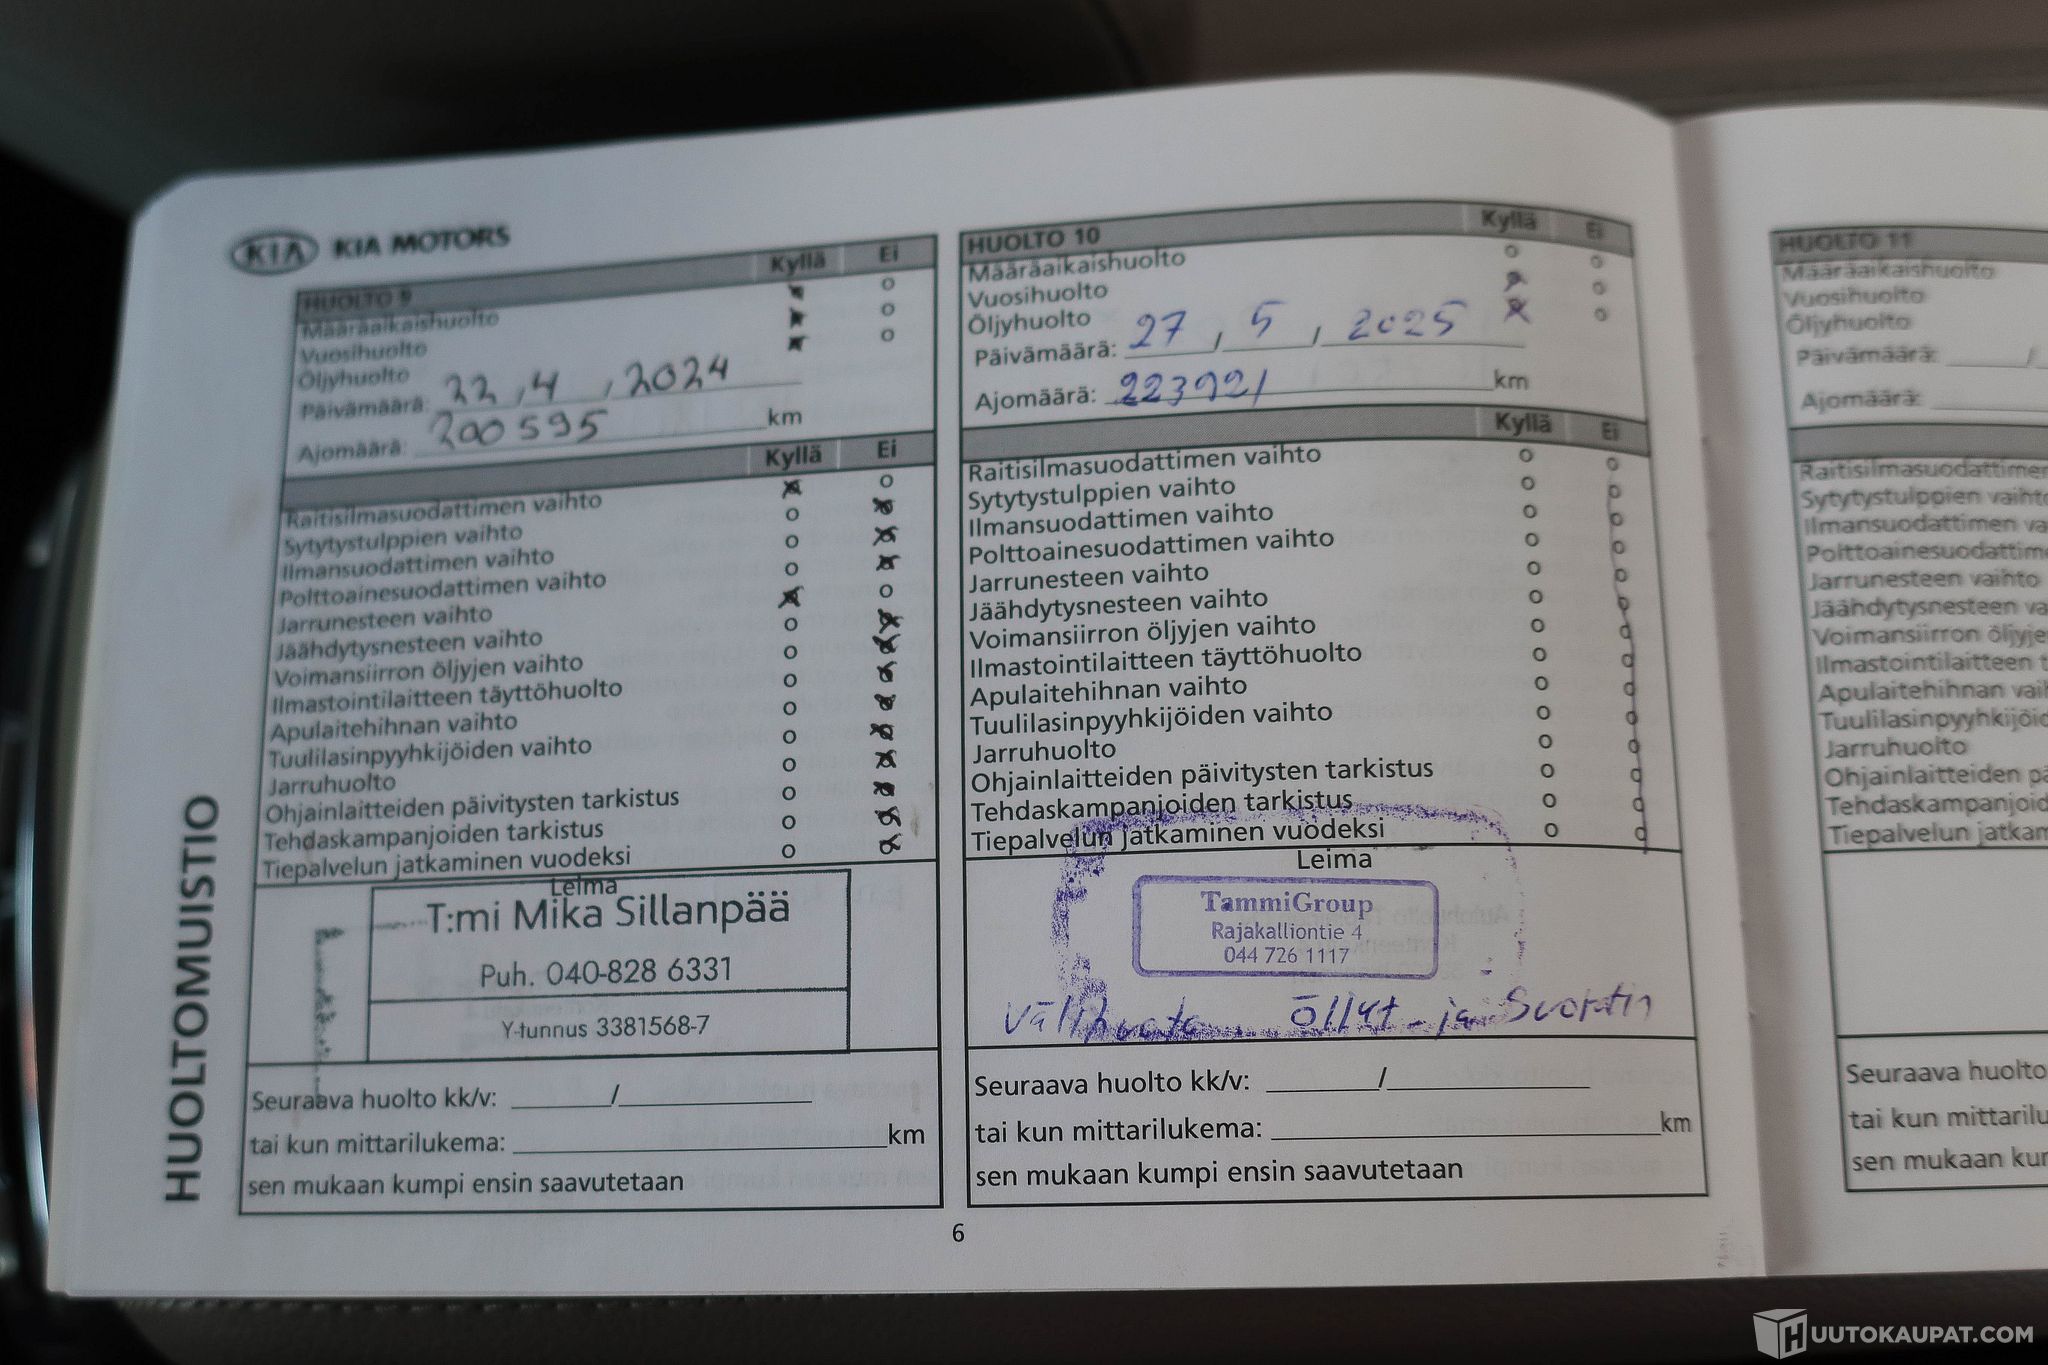 KIA KIA MOTORS
HUOLTOMUISTIO
HUOLTO 9 Kyllä Ei
Määräaikaishuolto
Vuosihuolto
Öljyhuolto
Päivämäärä: 22 , 4 , 2024
Ajomäärä: 200595 km
Kyllä Ei
Raitisilmasuodattimen vaihto
Sytytystulppien vaihto
Ilmansuodattimen vaihto
Polttoainesuodattimen vaihto
Jarrunesteen vaihto
Jäähdytysnesteen vaihto
Voimansiirron öljyjen vaihto
Ilmastointilaitteen täyttöhuolto
Apulaitehihnan vaihto
Tuulilasinpyyhkijöiden vaihto
Jarruhuolto
Ohjainlaitteiden päivitysten tarkistus
Tehdaskampanjoiden tarkistus
Tiepalvelun jatkaminen vuodeksi
Leima
T:mi Mika Sillanpää
Puh. 040-828 6331
Y-tunnus 3381568-7
Seuraava huolto kk/v: /
tai kun mittarilukema: km
sen mukaan kumpi ensin saavutetaan
HUOLTO 10 Kyllä Ei
Määräaikaishuolto
Vuosihuolto
Öljyhuolto
Päivämäärä: 27 , 5 , 2025
Ajomäärä: 223921 km
Kyllä Ei
Raitisilmasuodattimen vaihto
Sytytystulppien vaihto
Ilmansuodattimen vaihto
Polttoainesuodattimen vaihto
Jarrunesteen vaihto
Jäähdytysnesteen vaihto
Voimansiirron öljyjen vaihto
Ilmastointilaitteen täyttöhuolto
Apulaitehihnan vaihto
Tuulilasinpyyhkijöiden vaihto
Jarruhuolto
Ohjainlaitteiden päivitysten tarkistus
Tehdaskampanjoiden tarkistus
Tiepalvelun jatkaminen vuodeksi
Leima
TammiGroup
Rajakalliontie 4
044 726 1117
ja Suodatin
Seuraava huolto kk/v: /
tai kun mittarilukema: km
sen mukaan kumpi ensin saavutetaan
6
HUOLTO 11
Määräaikaishuolto
Vuosihuolto
Öljyhuolto
Päivämäärä: /
Ajomäärä:
Raitisilmasuodattime
Sytytystulppien vaihto
Ilmansuodattimen va
Polttoainesuodattime
Jarrunesteen vaihto
Jäähdytysnesteen va
Voimansiirron öljyje
Ilmastointilaitteen t
Apulaitehihnan vaih
Tuulilasinpyyhkijöid
Jarruhuolto
Ohjainlaitteiden pä
Tehdaskampanjoid
Tiepalvelun jatkam
Seuraava huolto
tai kun mittarilu
sen mukaan kum
HUUTOKAUPAT.COM